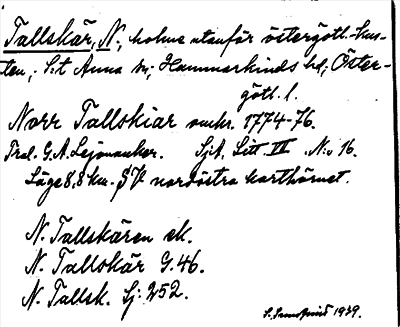 Tallskär, N., holme utanför östergötl.-kus-
ten, S:t Anna sn, Hammarkinds hd, Öster-
götl. l.
Norr Tallskiär omkr. 1774-76.
Trol. G.A. Lejonancker. Sjk. Litt. III N:o 16.
Läge 8,8 km. SV nordöstra karthörnet.
N. Tallskären ek.
N. Tallskär G. 46.
N. Tallsk. Sj. 252.
1939.